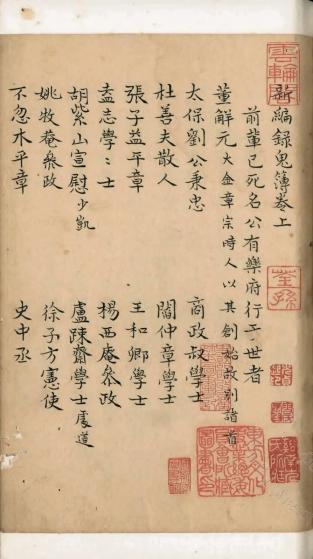 新編録鬼簿卷上
前輩已死名公有樂府行于世者
董解元大金章宗時人以其創始故列諸首
太保劉公秉忠 商政叔學士
杜善夫散人 閻仲章學士
張子益平章 王和卿學士
盍志學〻士 楊西庵叅政
胡紫山宣慰少凱 盧疎齋學士處道
姚牧菴叅政 徐子方憲使
不忽木平章 史中丞